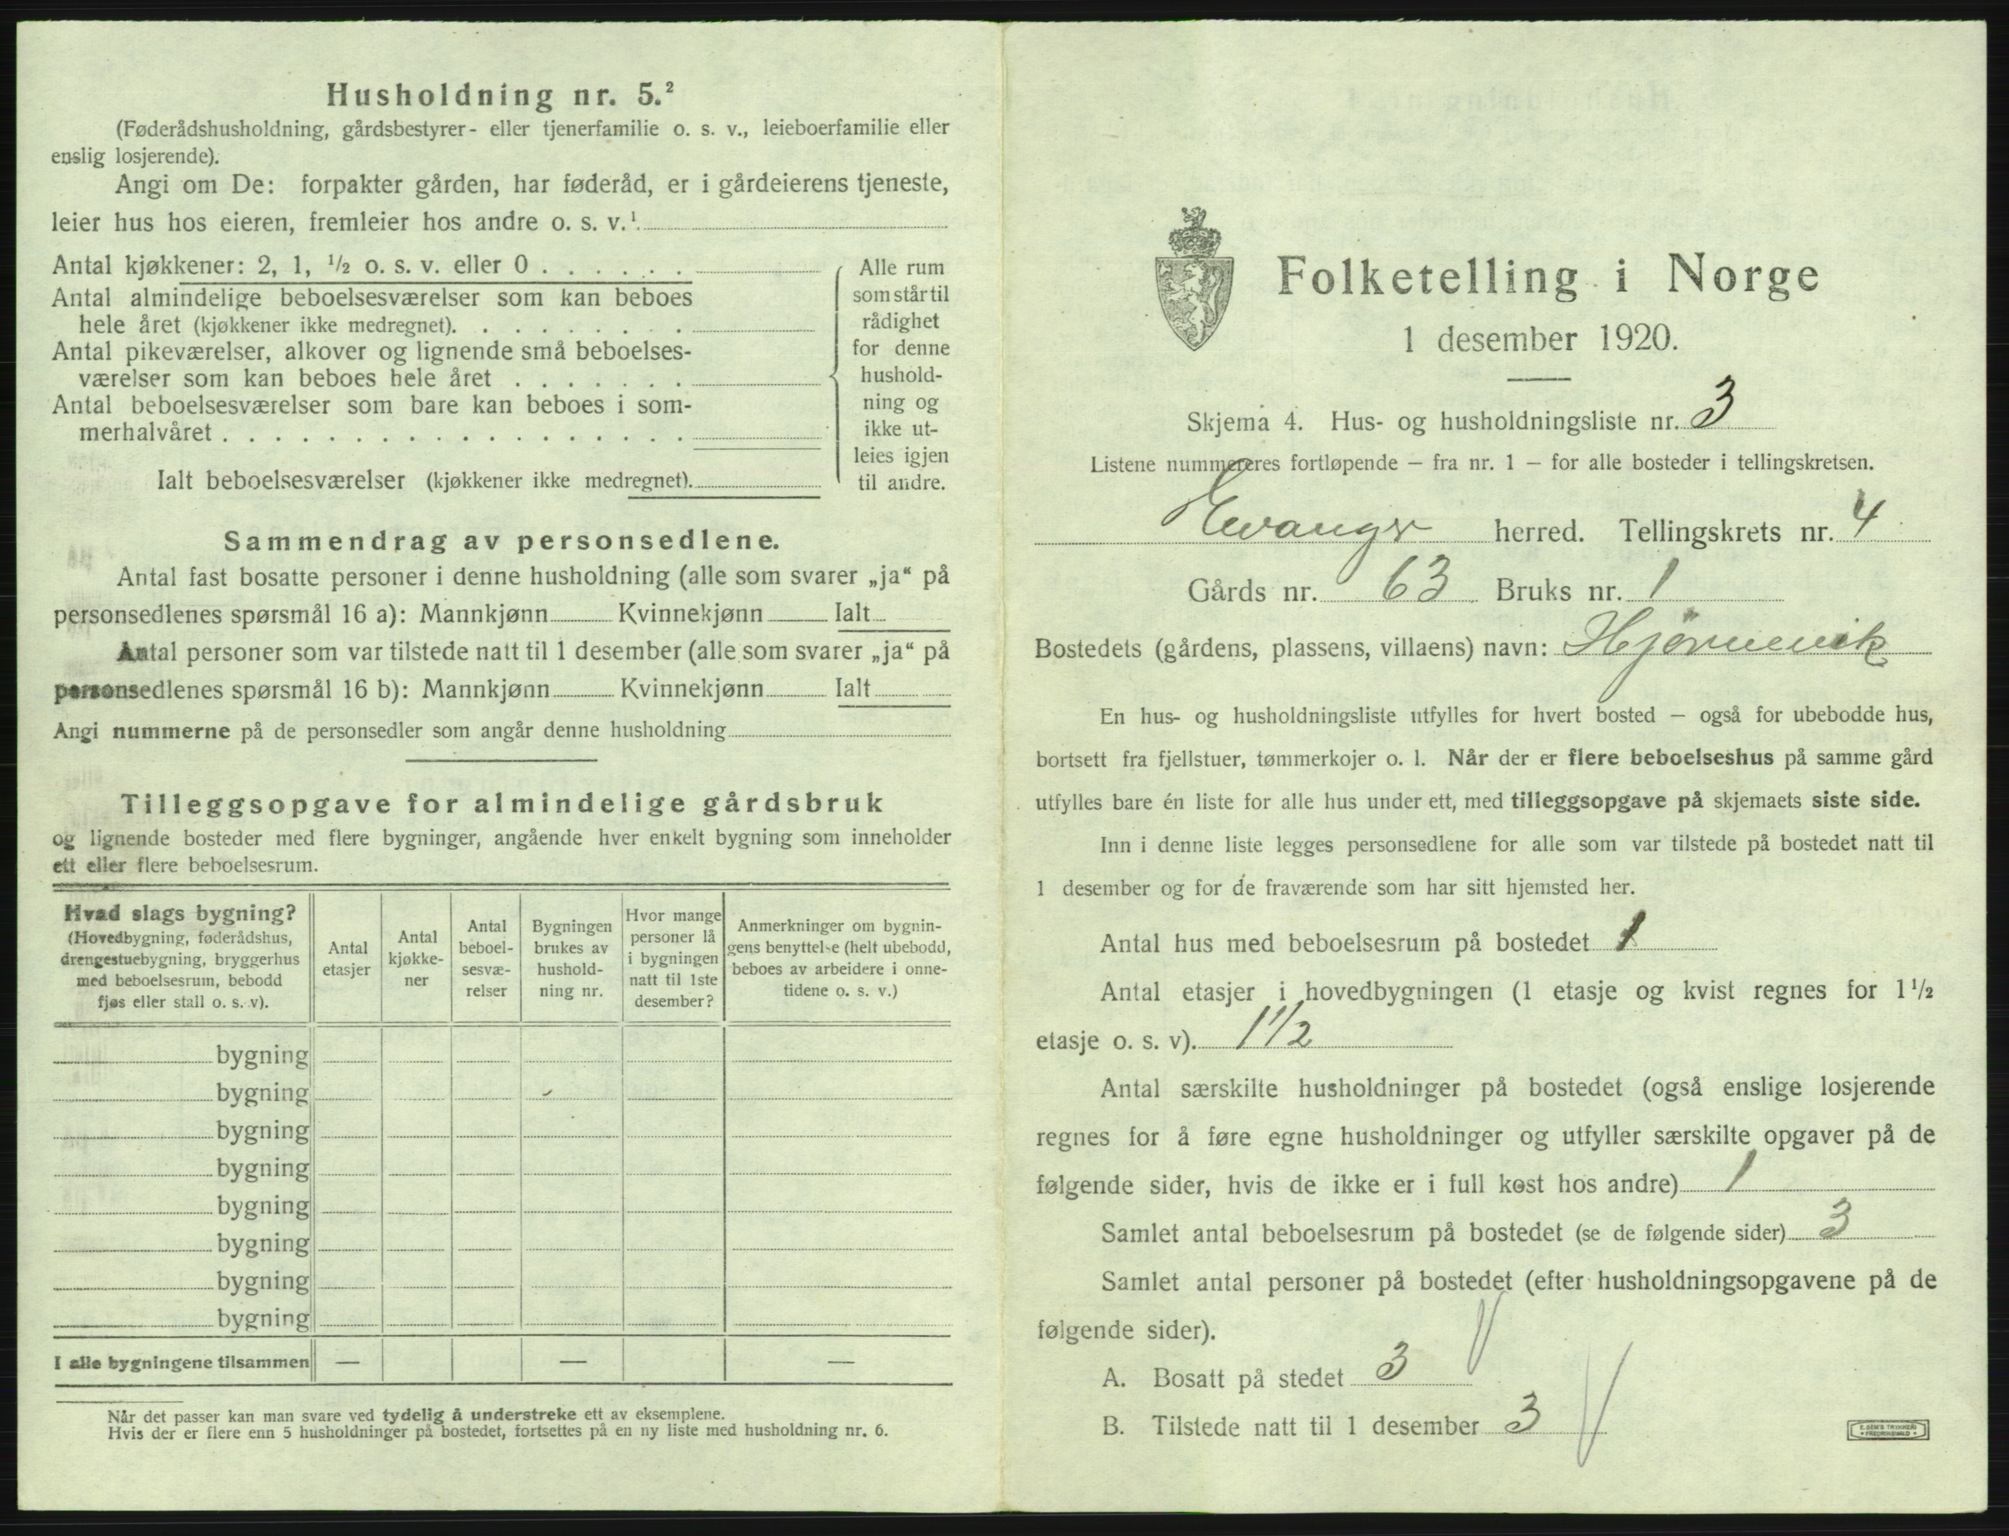 Husholdning nr. 5.²
(Føderådshusholdning, gårdsbestyrer- eller tjenerfamilie o. s. v., leieboerfamilie eller
enslig losjerende).
Angi om De: forpakter gården, har føderåd, er i gårdeierens tjeneste,
leier hus hos eieren, fremleier hos andre o. s. v.¹
Antal kjøkkener: 2, 1, ½ o. s. v. eller 0 . . . . . .
Antal almindelige beboelsesværelser som kan beboes
hele året (kjøkkener ikke medregnet). . . . . . . . .
Antal pikeværelser, alkover og lignende små beboelses-
værelser som kan beboes hele året . . . . . . .
Antal beboelsesværelser som bare kan beboes i som-
merhalvåret . . . . . . . . . . . . . . . . . .
Ialt beboelsesværelser (kjøkkener ikke medregnet).
Alle rum
som står til
rådighet
for denne
hushold-
ning og
ikke ut-
leies igjen
til andre.
Sammendrag av personsedlene.
Antal fast bosatte personer i denne husholdning (alle som svarer „ja“ på
personsedlenes spørsmål 16 a): Mannkjønn Kvinnekjønn Ialt
Antal personer som var tilstede natt til 1 desember (alle som svarer „ja“ på
personsedlenes spørsmål 16 b): Mannkjønn Kvinnekjønn Ialt
Angi nummerne på de personsedler som angår denne husholdning
Tilleggsopgave for almindelige gårdsbruk
og lignende bosteder med flere bygninger, angående hver enkelt bygning som inneholder
ett eller flere beboelsesrum.
Hvad slags bygning?
(Hovedbygning, føderådshus,
drengestuebygning, bryggerhus
med beboelsesrum, bebodd
fjøs eller stall o. s. v).
Antal
etasjer
Antal
kjøkke-
ner
Antal
beboel-
sesvæ-
relser
Bygningen
brukes av
hushold-
ning nr.
Hvor mange
personer lå
i bygningen
natt til 1ste
desember?
Anmerkninger om bygnin-
gens benyttelse (helt ubebodd,
beboes av arbeidere i onne-
tidene o. s. v.)
bygning
bygning
bygning
bygning
bygning
bygning
bygning
bygning
I alle bygningene tilsammen — — —
Når det passer kan man svare ved tydelig å understreke ett av eksemplene.
Hvis der er flere enn 5 husholdninger på bostedet, fortsettes på en ny liste med husholdning nr. 6.
Folketelling i Norge
1 desember 1920.
Skjema 4. Hus- og husholdningsliste nr. 3
Listene nummereres fortløpende — fra nr. 1 — for alle bosteder i tellingskretsen.
Evanger herred. Tellingskrets nr. 4
Gårds nr. 63 Bruks nr. 1
Bostedets (gårdens, plassens, villaens) navn: Hjörnevik
En hus- og husholdningsliste utfylles for hvert bosted — også for ubebodde hus,
bortsett fra fjellstuer, tømmerkojer o. l. Når der er flere beboelseshus på samme gård
utfylles bare én liste for alle hus under ett, med tilleggsopgave på skjemaets siste side.
Inn i denne liste legges personsedlene for alle som var tilstede på bostedet natt til
1 desember og for de fraværende som har sitt hjemsted her.
Antal hus med beboelsesrum på bostedet 1
Antal etasjer i hovedbygningen (1 etasje og kvist regnes for 1½
etasje o. s. v). 1½
Antal særskilte husholdninger på bostedet (også enslige losjerende
regnes for å føre egne husholdninger og utfyller særskilte opgaver på de
følgende sider, hvis de ikke er i full kost hos andre) 1
Samlet antal beboelsesrum på bostedet (se de følgende sider) 3
Samlet antal personer på bostedet (efter husholdningsopgavene på de
følgende sider).
A. Bosatt på stedet 3
B. Tilstede natt til 1 desember 3